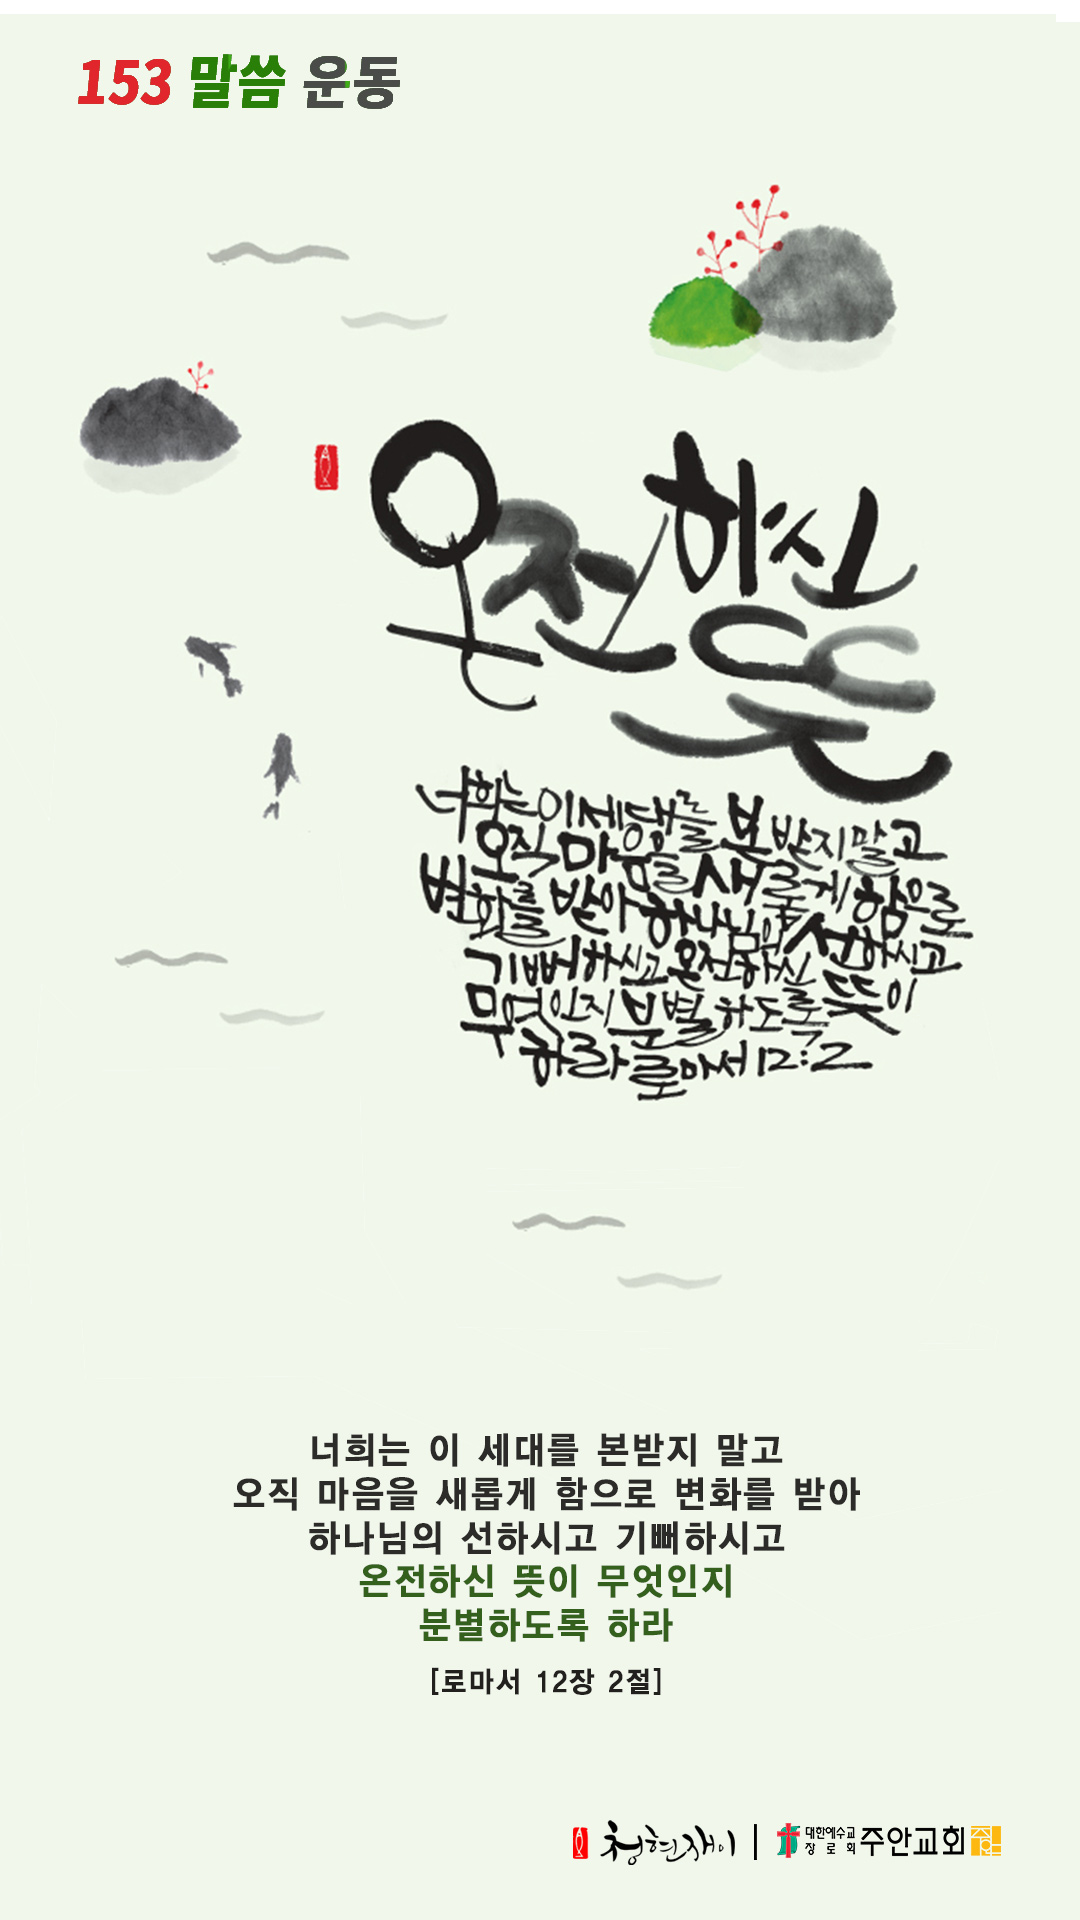 153 말씀 운동
온전하신
뜻
너희는 이 세대를 본받지 말고
오직 마음을 새롭게 함으로
변화를 받아 하나님의 선하시고
기뻐하시고 온전하신 뜻이
무엇인지 분별하도록
하라 로마서 12:2
너희는 이 세대를 본받지 말고
오직 마음을 새롭게 함으로 변화를 받아
하나님의 선하시고 기뻐하시고
온전하신 뜻이 무엇인지
분별하도록 하라
[로마서 12장 2절]
청현재이 | 대한예수교 장로회 주안교회 주안